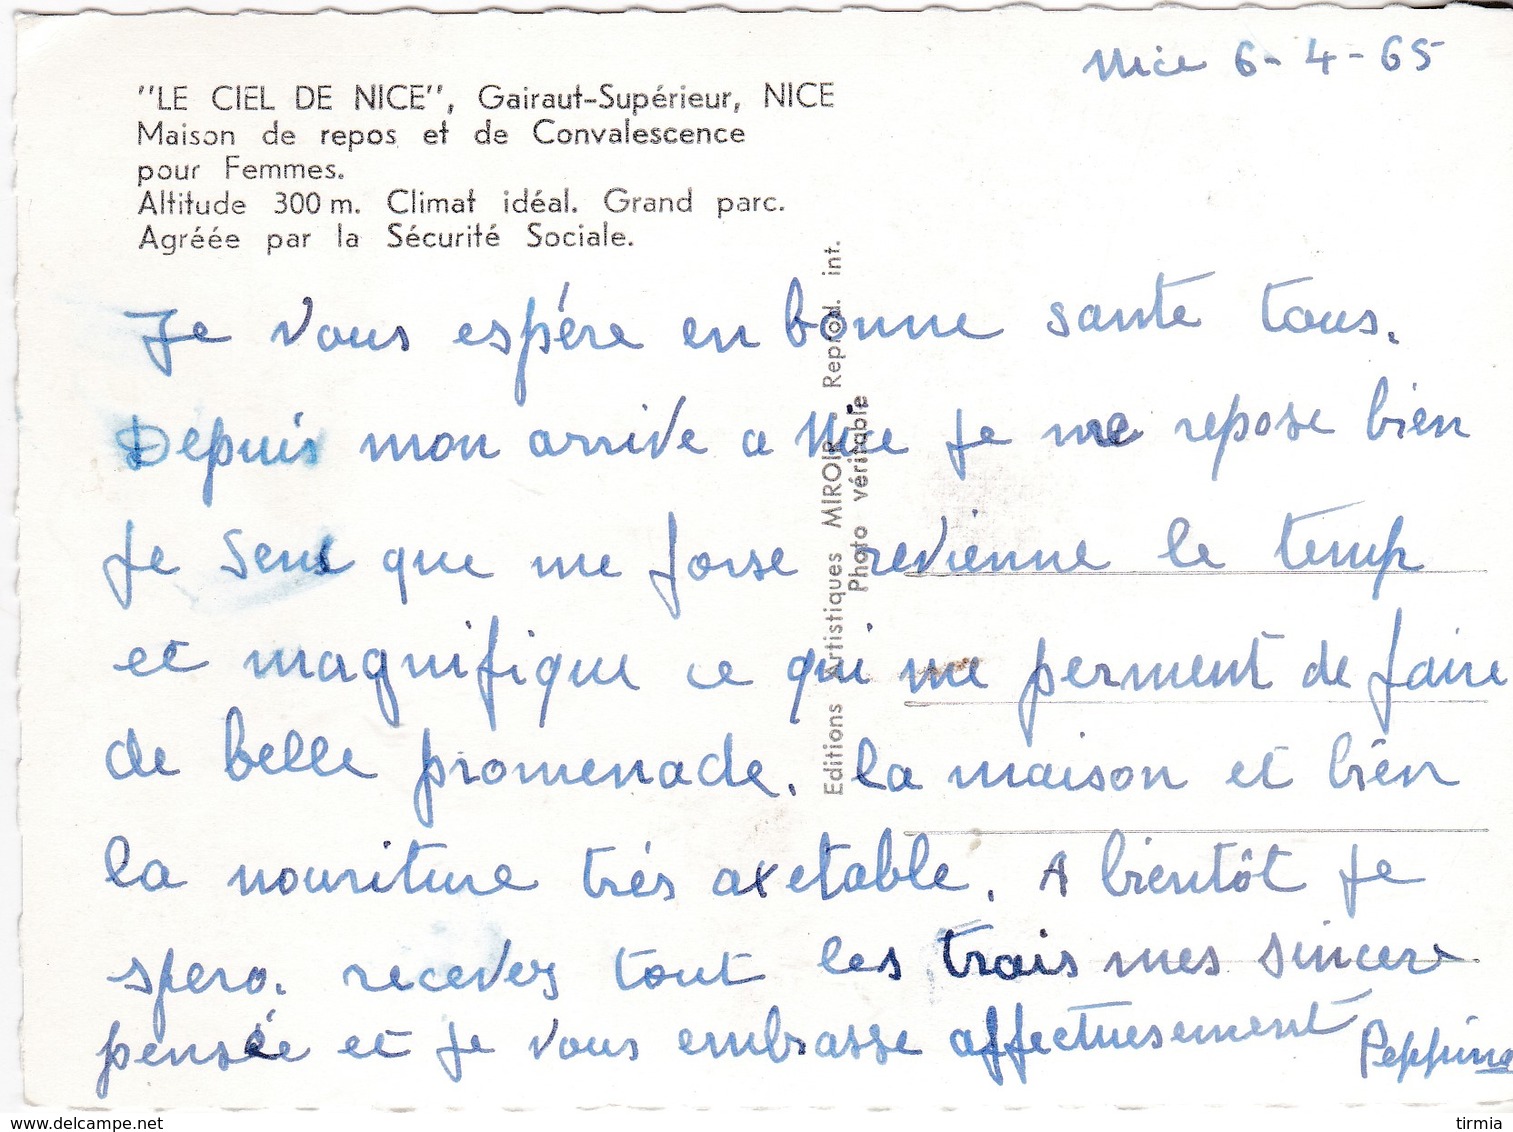 Nice 6-4-65
"LE CIEL DE NICE", Gairaut-Supérieur, NICE
Maison de repos et de Convalescence
pour Femmes.
Altitude 300 m. Climat idéal. Grand parc.
Agréée par la Sécurité Sociale.
Je vous espére en bonne sante tous.
Depuis mon arrive a Nice je me repose bien
je sens que me forse revienne le temp
et magnifique ce qui me perment de faire
de belle promenade. la maison et bien
la nouriture trés axetable. A bientôt je
spero. recevez tout les trois mes sincere
pensée et je vous embrasse affectuesement
Peppina
Editions Artistiques MIROIR Reprod. int.
Photo véritable
delcampe.net
tirmia